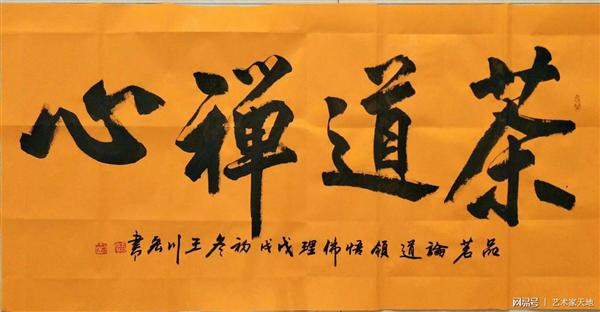 茶道禅心
品茗論道領悟佛理戊戌初冬王川書
网易号 | 艺术家天地